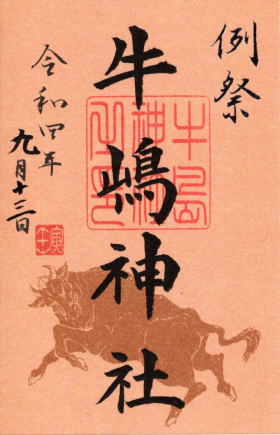 例祭
牛嶋神社
牛島
神社
之印
令和四年
九月十三日
壬寅